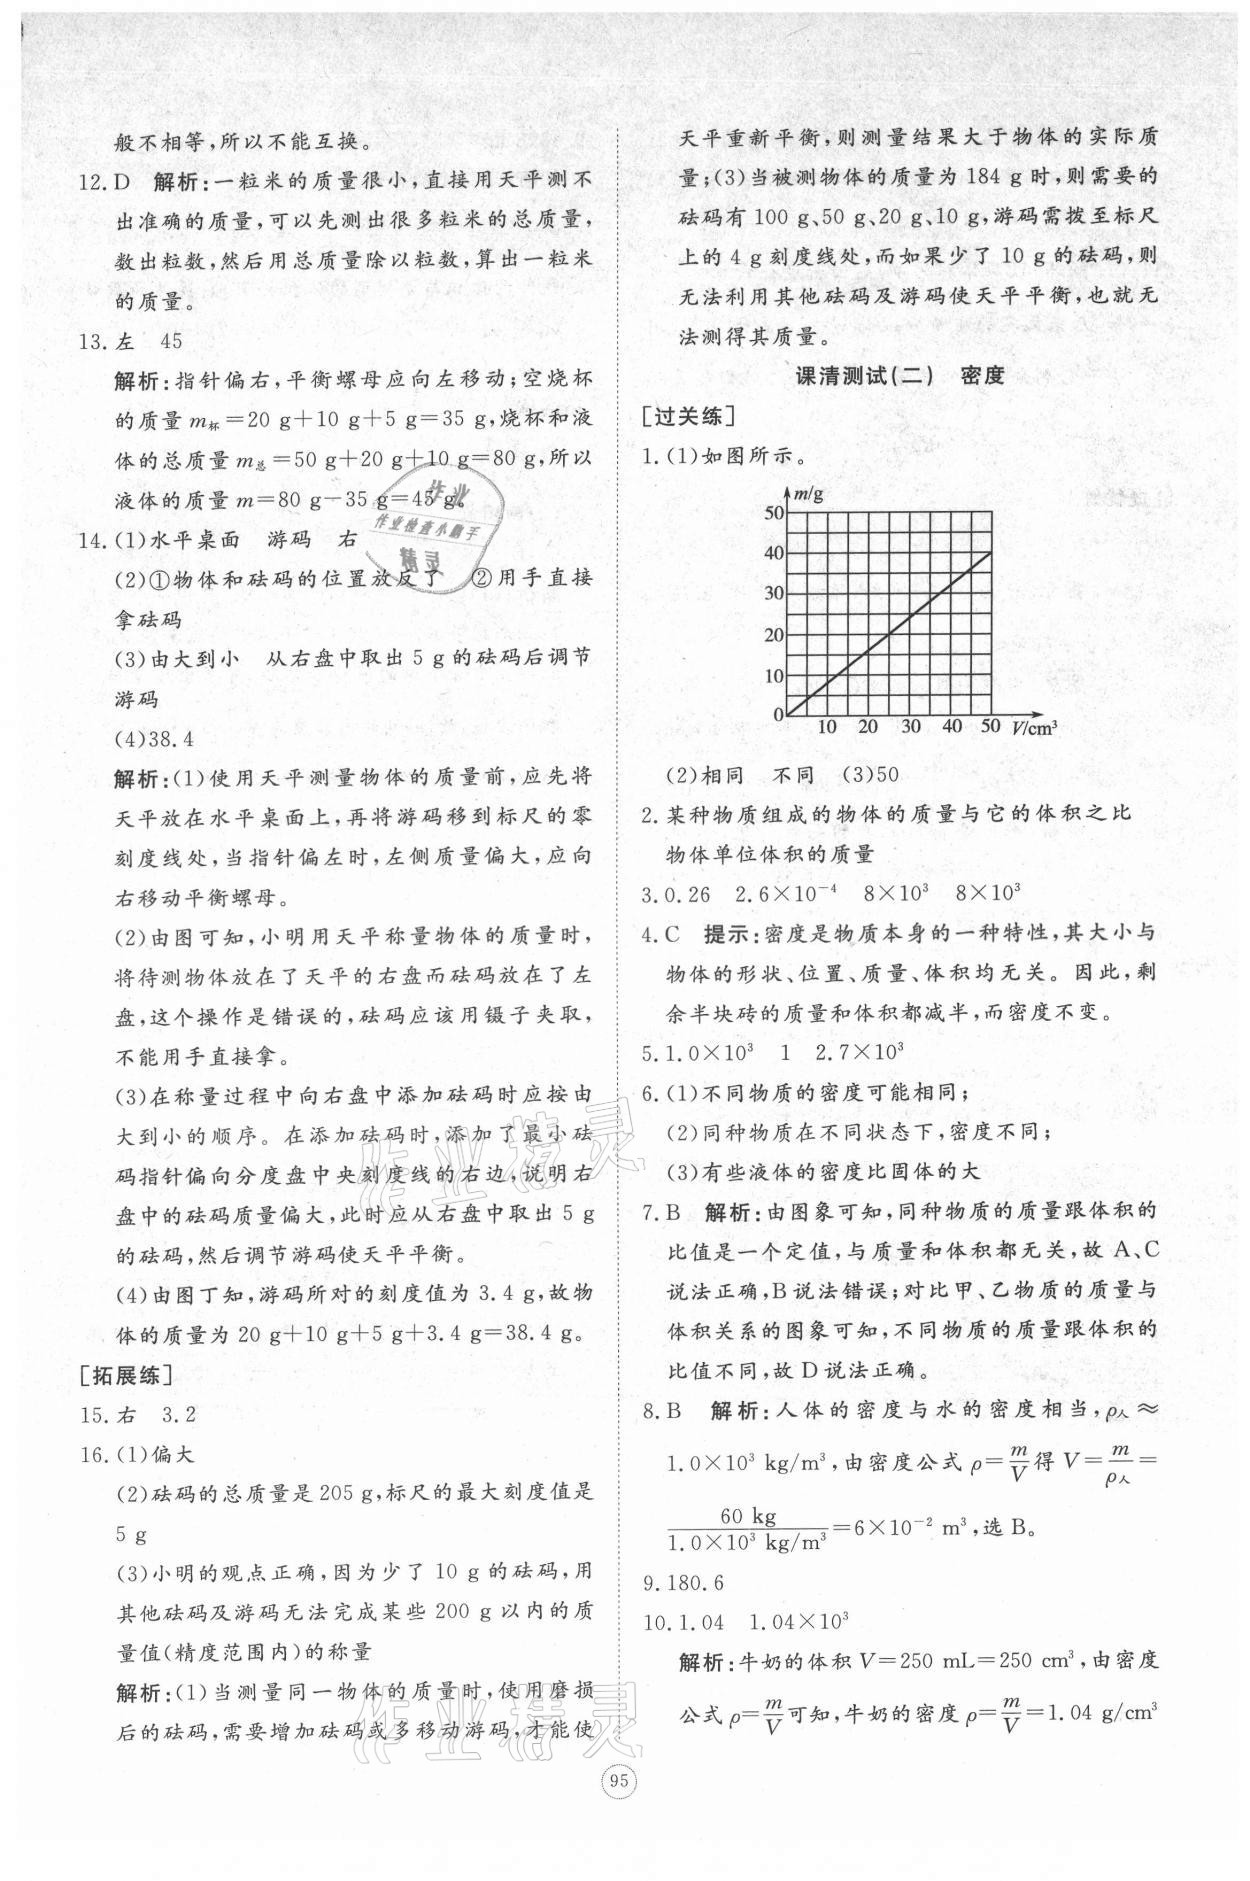 般不相等,所以不能互换。
12.D 解析:一粒米的质量很小,直接用天平测不
出准确的质量,可以先测出很多粒米的总质量,
数出粒数,然后用总质量除以粒数,算出一粒米
的质量。
13.左 45
解析:指针偏右,平衡螺母应向左移动;空烧杯
的质量m杯=20 g+10 g+5 g=35 g,烧杯和液
体的总质量m总=50 g+20 g+10 g=80 g,所以
液体的质量m=80 g-35 g=45 g。
14.(1)水平桌面 游码 右
(2)①物体和砝码的位置放反了 ②用手直接
拿砝码
(3)由大到小 从右盘中取出5 g的砝码后调节
游码
(4)38.4
解析:(1)使用天平测量物体的质量前,应先将
天平放在水平桌面上,再将游码移到标尺的零
刻度线处,当指针偏左时,左侧质量偏大,应向
右移动平衡螺母。
(2)由图可知,小明用天平称量物体的质量时,
将待测物体放在了天平的右盘而砝码放在了左
盘,这个操作是错误的,砝码应该用镊子夹取,
不能用手直接拿。
(3)在称量过程中向右盘中添加砝码时应按由
大到小的顺序。在添加砝码时,添加了最小砝
码指针偏向分度盘中央刻度线的右边,说明右
盘中的砝码质量偏大,此时应从右盘中取出5 g
的砝码,然后调节游码使天平平衡。
(4)由图丁知,游码所对的刻度值为3.4 g,故物
体的质量为20 g+10 g+5 g+3.4 g=38.4 g。
[拓展练]
15.右 3.2
16.(1)偏大
(2)砝码的总质量是205 g,标尺的最大刻度值是
5 g
(3)小明的观点正确,因为少了10 g的砝码,用
其他砝码及游码无法完成某些200 g以内的质
量值(精度范围内)的称量
解析:(1)当测量同一物体的质量时,使用磨损
后的砝码,需要增加砝码或多移动游码,才能使
天平重新平衡,则测量结果大于物体的实际质
量;(3)当被测物体的质量为184 g时,则需要的
砝码有100 g、50 g、20 g、10 g,游码需拨至标尺
上的4 g刻度线处,而如果少了10 g的砝码,则
无法利用其他砝码及游码使天平平衡,也就无
法测得其质量。
课清测试(二) 密度
[过关练]
1.(1)如图所示。
m/g
50
40
30
20
10
0
10 20 30 40 50 V/cm³
(2)相同 不同 (3)50
2.某种物质组成的物体的质量与它的体积之比
物体单位体积的质量
3.0.26 2.6×10⁻⁴ 8×10³ 8×10³
4.C 提示:密度是物质本身的一种特性,其大小与
物体的形状、位置、质量、体积均无关。因此,剩
余半块砖的质量和体积都减半,而密度不变。
5.1.0×10³ 1 2.7×10³
6.(1)不同物质的密度可能相同;
(2)同种物质在不同状态下,密度不同;
(3)有些液体的密度比固体的大
7.B 解析:由图象可知,同种物质的质量跟体积的
比值是一个定值,与质量和体积都无关,故A、C
说法正确,B说法错误;对比甲、乙物质的质量与
体积关系的图象可知,不同物质的质量跟体积的
比值不同,故D说法正确。
8.B 解析:人体的密度与水的密度相当,ρ人≈
1.0×10³ kg/m³,由密度公式ρ=m/V得V=m/ρ人=
60 kg/1.0×10³ kg/m³=6×10⁻² m³,选B。
9.180.6
10.1.04 1.04×10³
解析:牛奶的体积V=250 mL=250 cm³,由密度
公式ρ=m/V可知,牛奶的密度ρ=m/V=1.04 g/cm³
95
作业
作业检查小助手
作业精灵
作业精灵